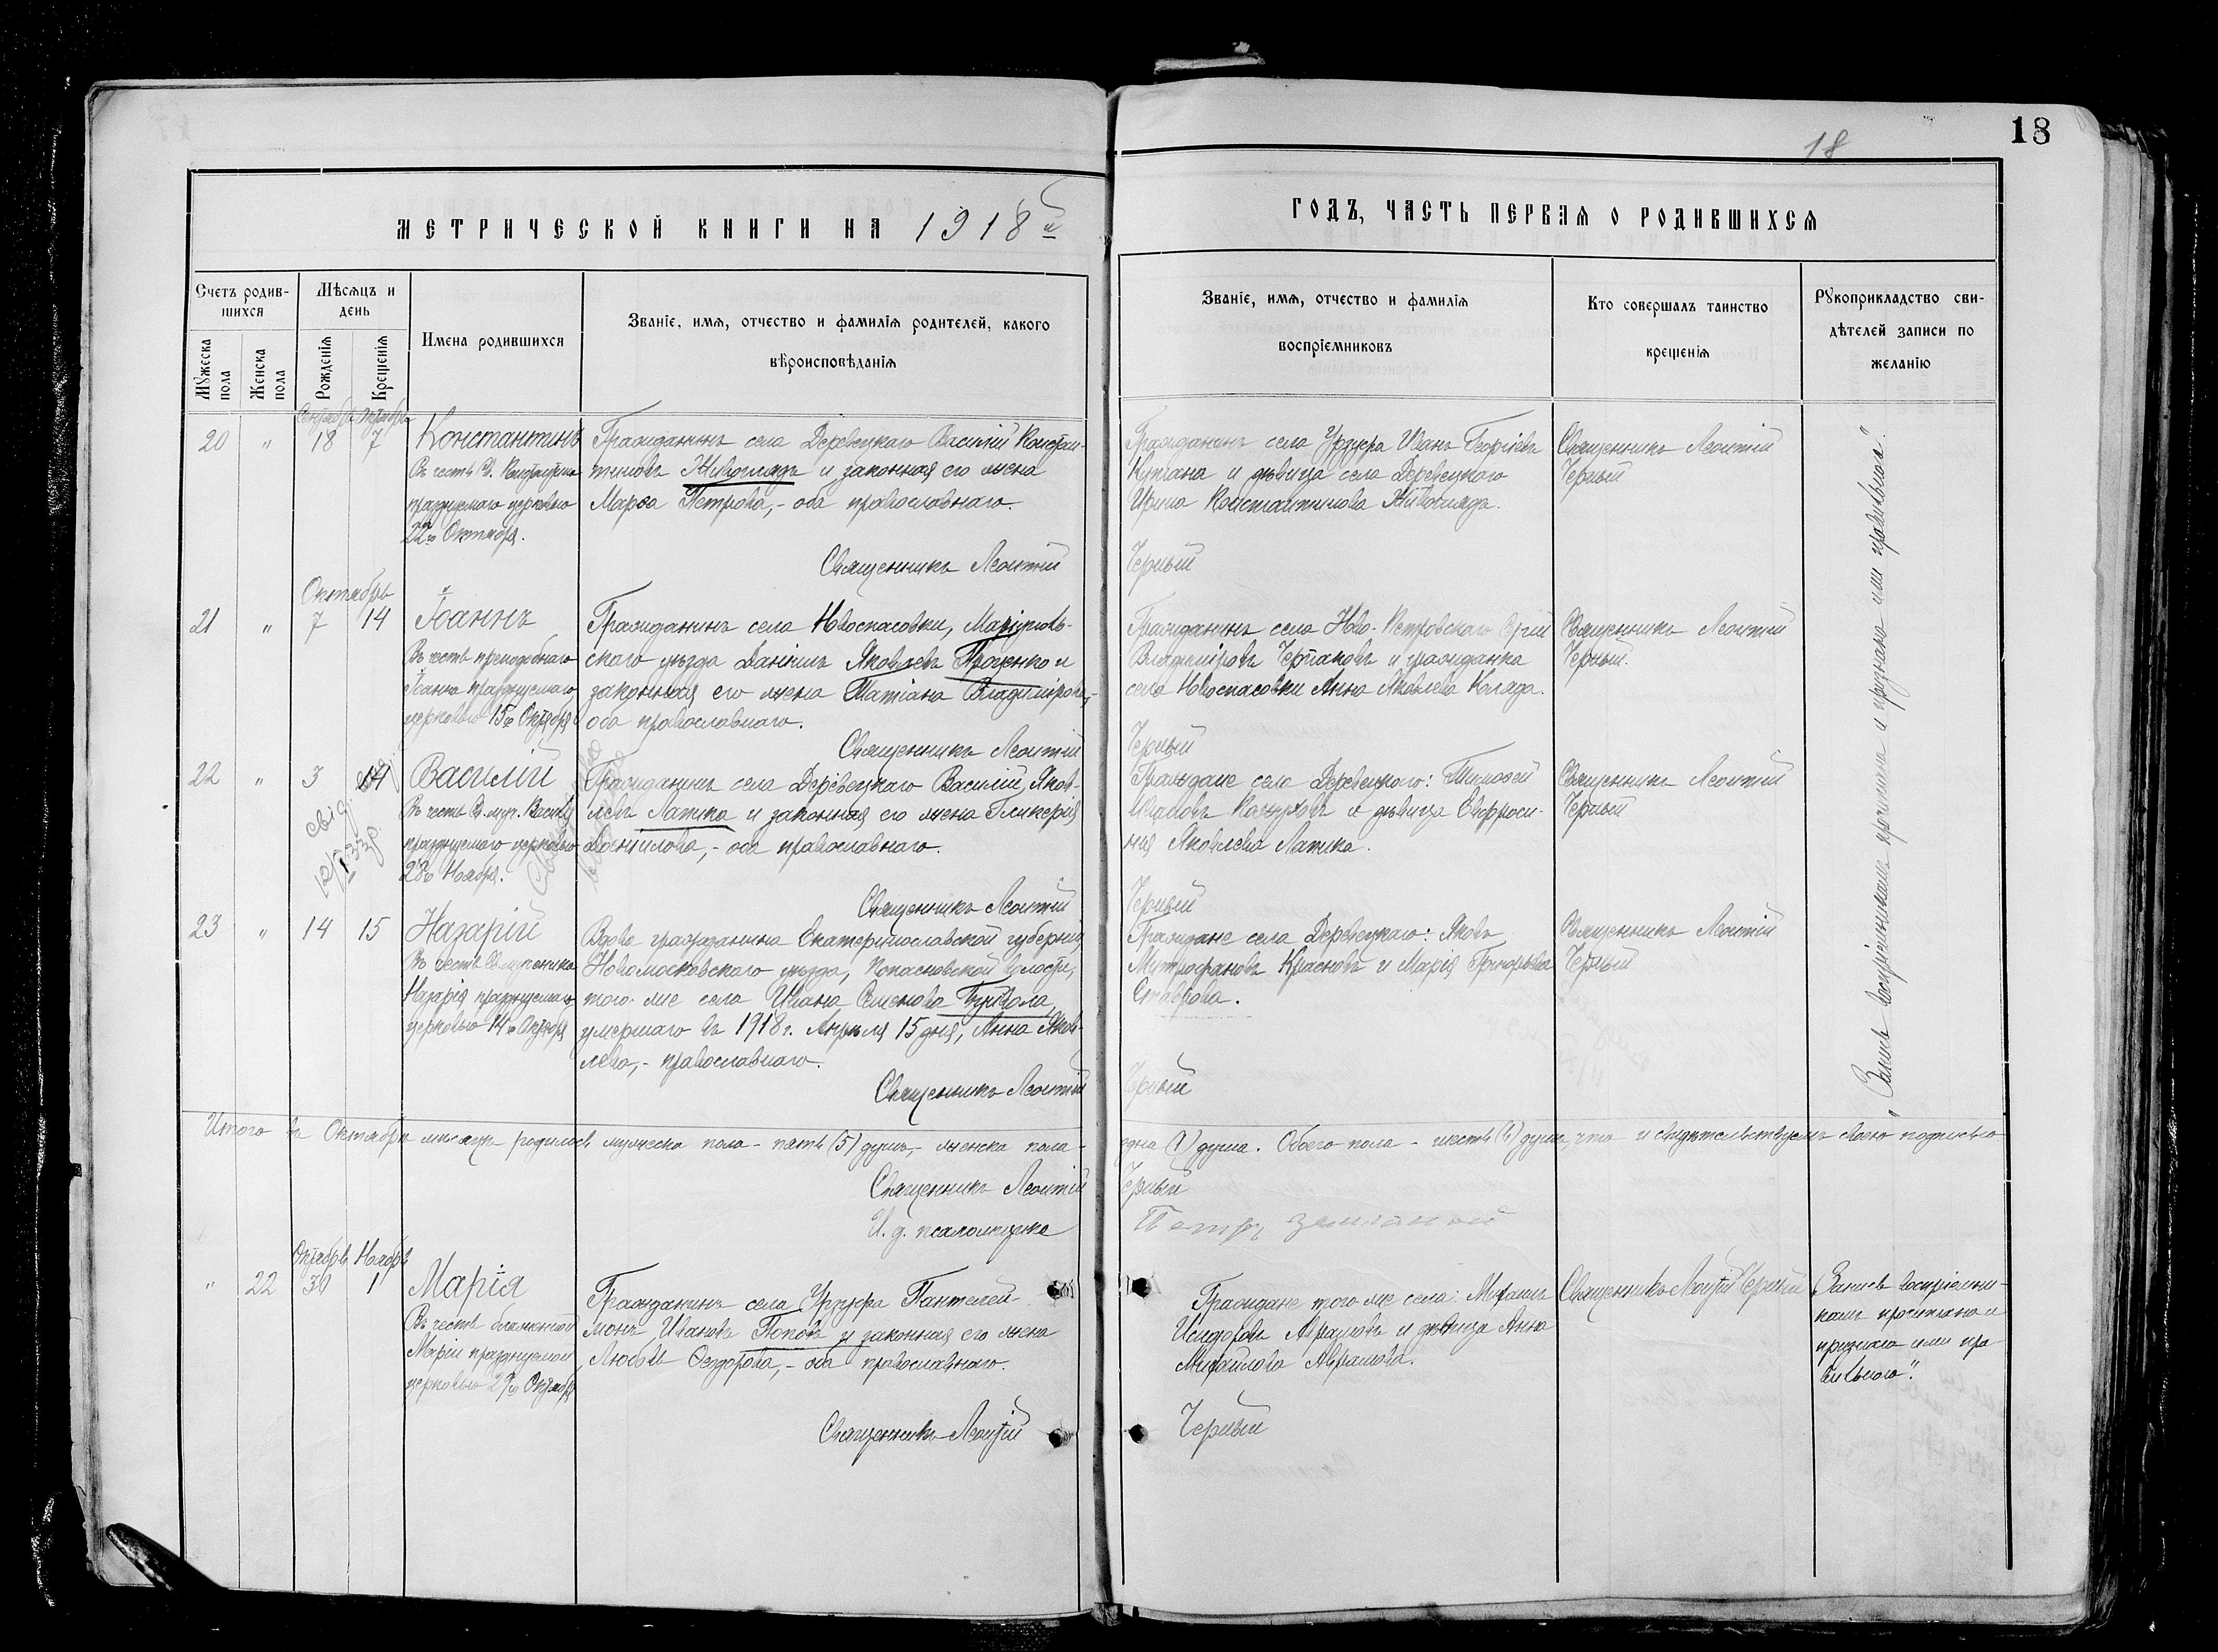 18
18
МЕТРИЧЕСКОЙ КНИГИ НА 1918й
ГОДЪ, ЧАСТЬ ПЕРВАЯ О РОДИВШИХСЯ
Счетъ родив-
шихся
Мѣсяцъ и
день
Имена родившихся
Званіе, имя, отчество и фамилія родителей, какого
вѣроисповѣданія
Мужеска
пола
Женска
пола
Рожденія
Крещенія
Званіе, имя, отчество и фамилія
воспріемниковъ
Кто совершалъ таинство
крещенія
Рукоприкладство сви-
дѣтелей записи по
желанію
Сентябрь Октябрь
20 " 18 7
Константинъ
Въ честь Константина
празднуемаго церковью
22го Октября.
Гражданинъ села Деревецкаго Василій Констан-
тиновъ Живогладъ и законная его жена
Марѳа Петрова,- оба православнаго.
Священникъ Леонтій
Гражданинъ села Урзуфа Иванъ Георгіевъ
и дѣвица села Деревецкаго
Ирина Константинова Живогладъ.
Черный
Священникъ Леонтій
Черный
Октябрь
21 " 7 14
Іоаннъ
Въ честь преподобнаго
Іоанна празднуемаго
церковью 15го Октября
Гражданинъ села Новоспасовки, Маріуполь-
скаго уѣзда Даніилъ Яковлевъ Проценко и
законная его жена Татіана Владимірова,-
оба православнаго.
Священникъ Леонтій
Гражданинъ села Ново-Петровскаго Сергій
Владиміровъ и гражданка
села Новоспасовки Анна Яковлева Коляда.
Черный
Священникъ Леонтій
Черный.
22 " 3 14
Василій
Въ честь Св. муч. Василія
празднуемаго церковью
28го Ноября.
свід.
12/I 33р.
Гражданинъ села Деревецкаго Василій Яков-
левъ Латика и законная его жена Гликерія
Даніилова,- оба православнаго.
Священникъ Леонтій
Граждане села Деревецкаго: Тимоѳей
Ивановъ и дѣвица Евфроси-
нія Яковлева Латика.
Черный
Священникъ Леонтій
Черный
23 " 14 15
Назарій
Въ честь Св. мученика
Назарія празднуемаго
церковью 14го Октября
Вдова гражданина Екатеринославской губерніи,
Новомосковскаго уѣзда, Попасновской волости,
того-же села Ивана Семенова Буйвола,
умершаго въ 1918 г. Апрѣля 15 дня, Анна Яков-
лева,- православнаго.
Священникъ Леонтій
Граждане села Деревецкаго: Яковъ
Митрофановъ Красновъ и Марія Григорьева
Ставрова.
Черный
Священникъ Леонтій
Черный
"Запись воспріемникамъ прочитана и признана ими правильною."
Итого въ Октябрѣ мѣсяцѣ родилось мужеска пола - пять (5) душъ,- женска пола -
одна (1) душа. Обоего пола - шесть (6) душъ, что и свидѣтельствуемъ своею подписью
Священникъ Леонтій
Черный
И. д. псаломщика
Петръ
Октябрь Ноябрь
" 22 30 1
Марія
Въ честь блаженной
Маріи празднуемой
церковью 29го Октября
Гражданинъ села Урзуфа Пантелей-
монъ Ивановъ Поповъ и законная его жена
Любовь Ѳеодорова,- оба православнаго.
Священникъ Леонтій
Граждане того-же села: Михаилъ
Исидоровъ Аврамовъ и дѣвица Анна
Михайлова Аврамова.
Черный
Священникъ Леонтій Черный
"Запись воспріемни-
камъ прочитана и
признана ими пра-
вильною".